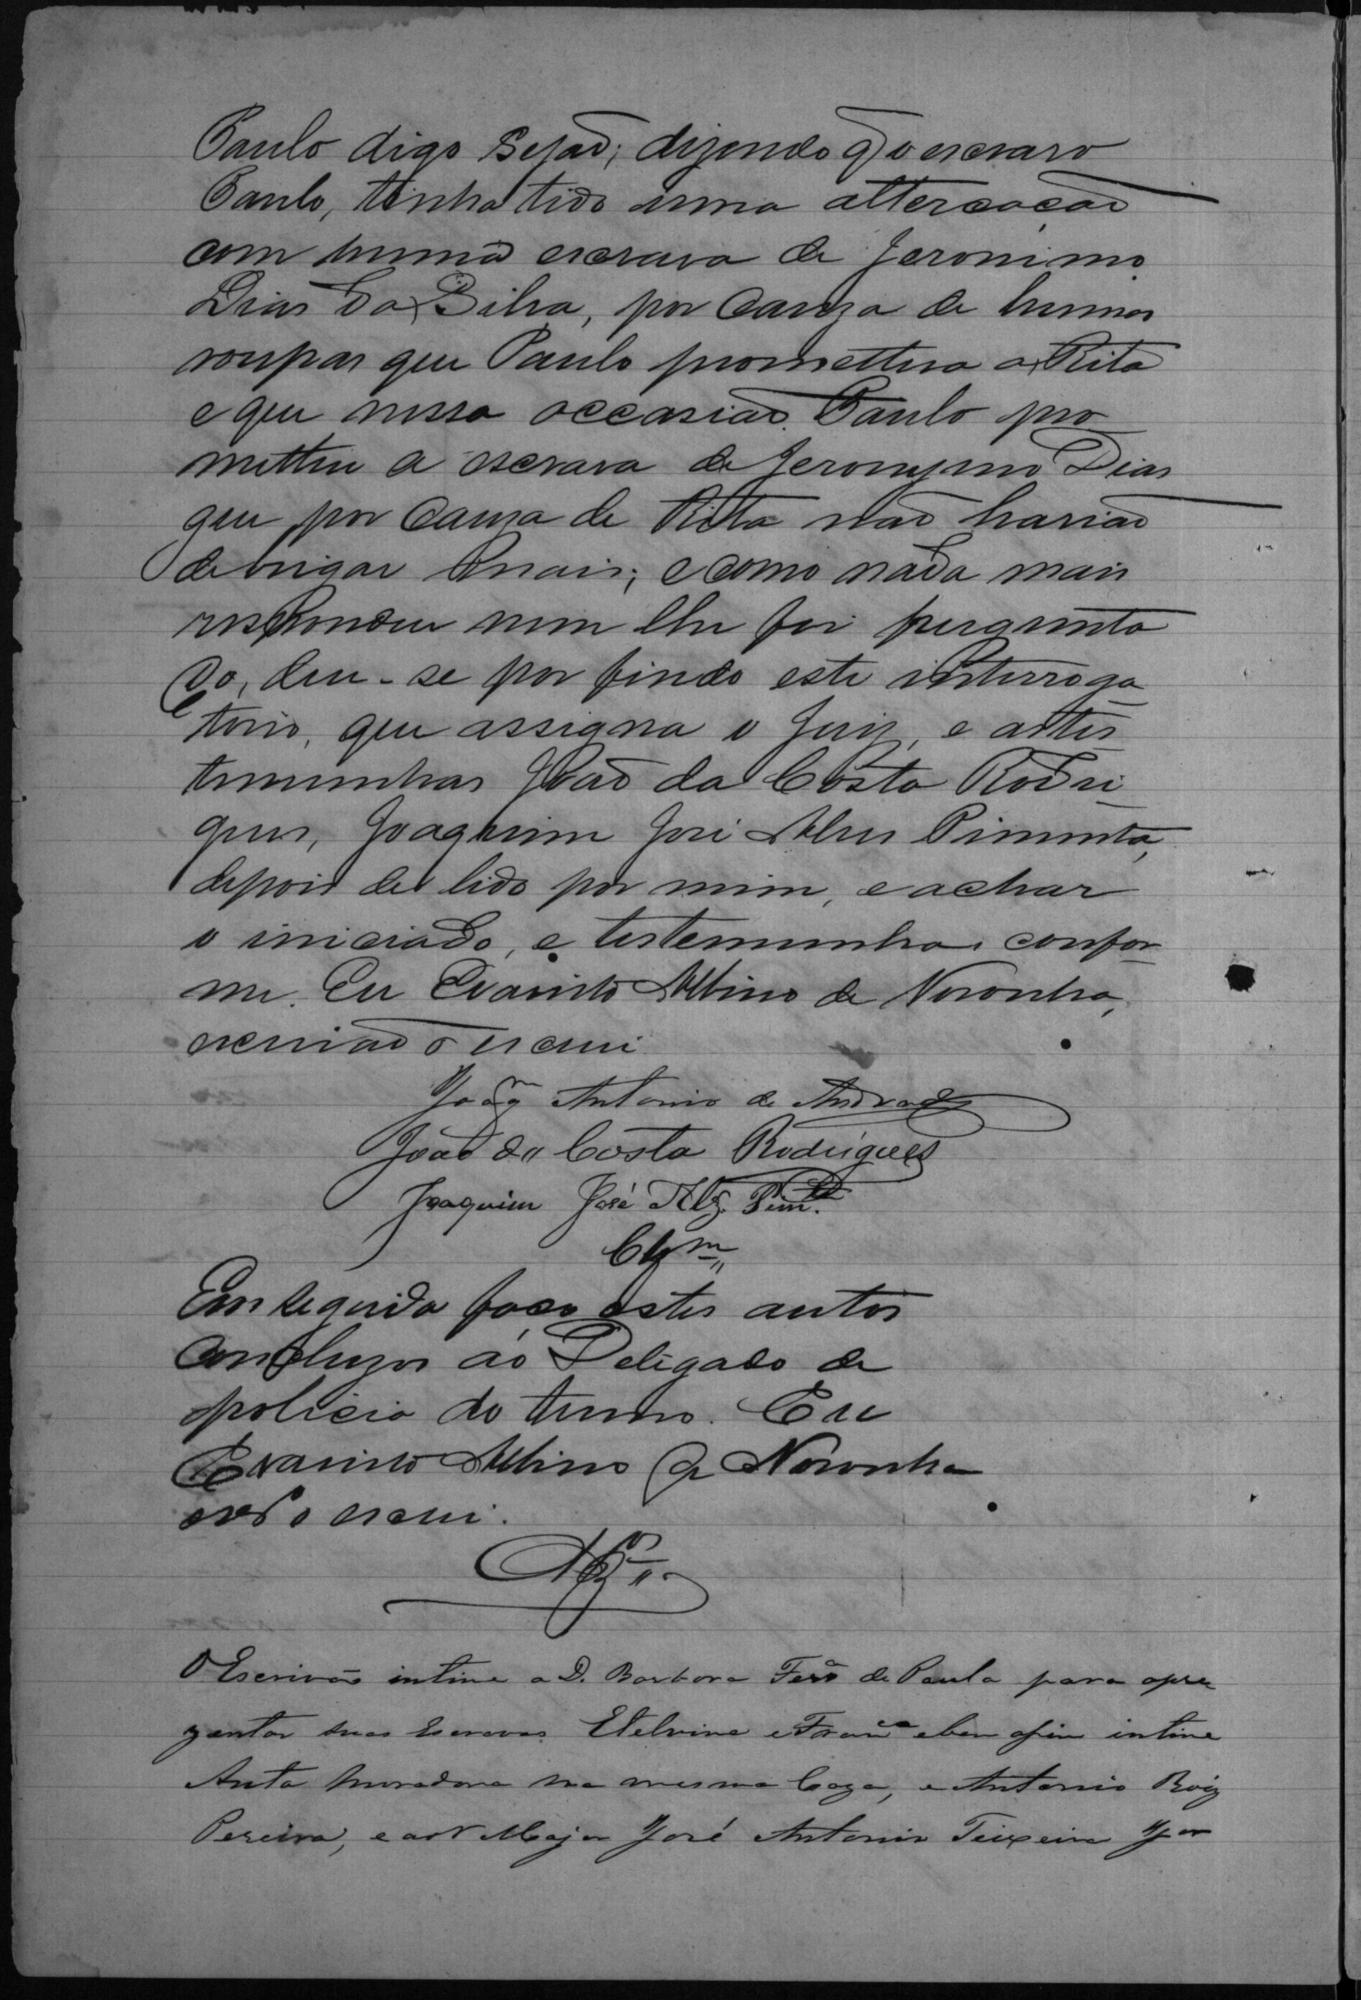 Paulo digo Sejão; dizendo q̃ o escravo
Paulo, tinha tido uma altercação
com huma escrava de Jeronimo
Dias da Silva, por cauza de humas
roupas que Paulo promettera a Rita
e que nessa occasião Paulo pro
metteu a escrava de Jeronymo Dias
que por cauza de Rita não havião
de brigar mais; e como nada mais
respondeu nem lhe foi pergunta
do, deu-se por findo este interroga
torio, que assigna o Juiz, e as tes
temunhas João da Costa Rodri
gues, Joaquim José Alves Pimenta,
depois de lido por mim, e achar
o iniciado, e testemunhas confor
me. Eu Evaristo Albino de Noronha,
escrivão o escrevi
Joaqm Antonio de Andrade
João da Costa Rodrigues
Joaquim José Alz. Pimta.
Clzm
Em seguida faço estes autos
concluzos ao Delegado de
policia do termo. Eu
Evaristo Albino de Noronha
escrvão o escrevi.
O Escrivão intime a D. Barbora de Paula para apre
zentar suas Escravas Etelvina e bem assim intime
Anta moradora na mesma Caza, e Antonio Roiz
Pereira, e ao Major José Antonio Teixeira Jor